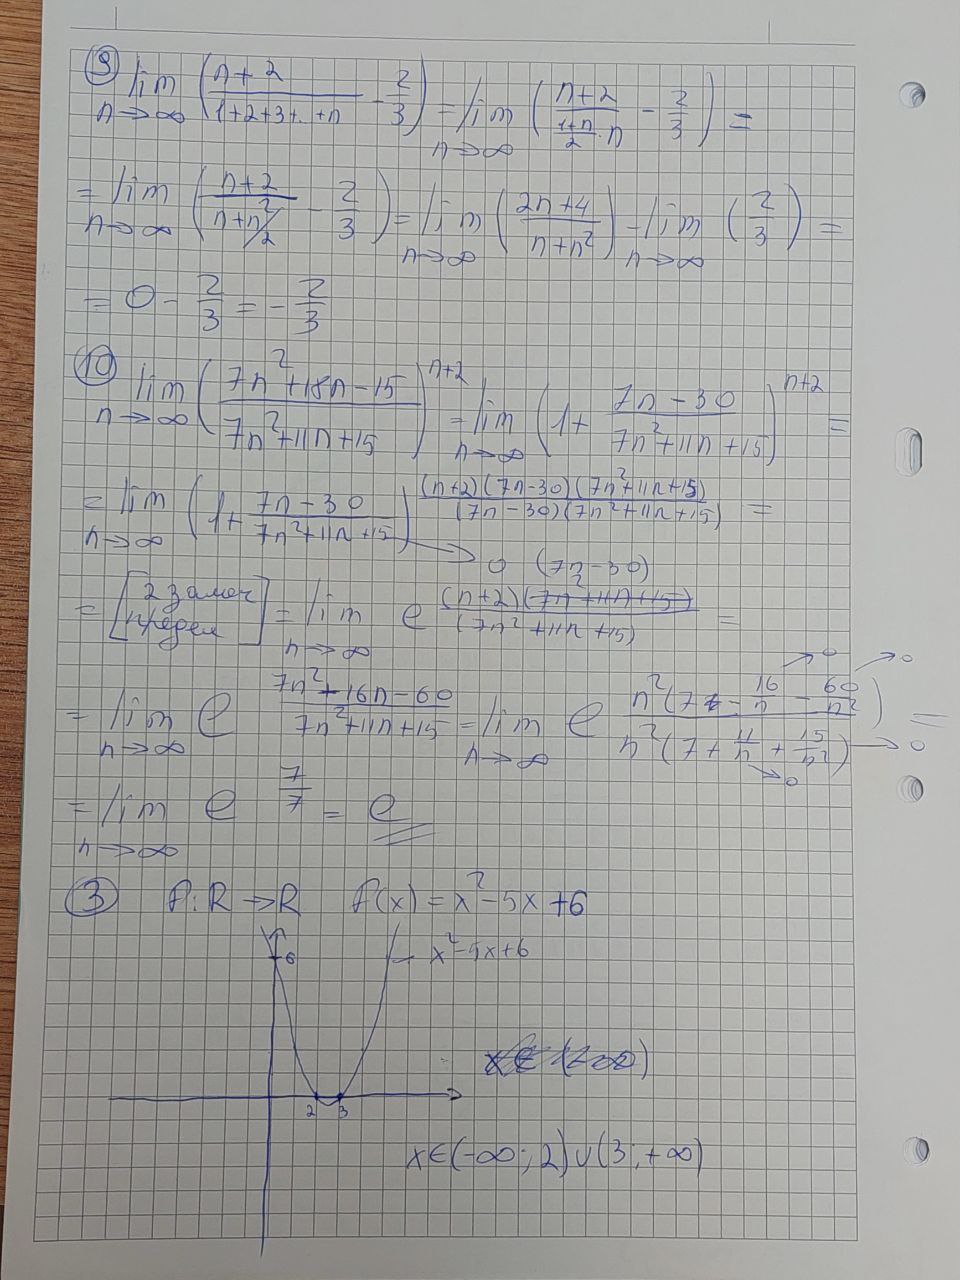 9) lim n→∞ ((n+2)/(1+2+3+..+n) - 2/3) = lim n→∞ ((n+2)/((1+n)/2 · n) - 2/3) =
= lim n→∞ ((n+2)/((n+n²)/2) - 2/3) = lim n→∞ ((2n+4)/(n+n²)) - lim n→∞ (2/3) =
= 0 - 2/3 = - 2/3
10) lim n→∞ ((7n²+18n-15)/(7n²+11n+15))^(n+2) = lim n→∞ (1+ (7n-30)/(7n²+11n+15))^(n+2) =
= lim n→∞ (1+ (7n-30)/(7n²+11n+15))^((n+2)(7n-30)(7n²+11n+15)/((7n-30)(7n²+11n+15))) =
→ 0 (7n-30)
= [2 замеч предел] = lim n→∞ e^((n+2)(7n²+11n+15)/(7n²+11n+15)) =
= lim n→∞ e^((7n²+16n-60)/(7n²+11n+15)) = lim n→∞ e^(n²(7 - 16/n - 60/n²)/(n²(7 + 11/n + 15/n²))) =
→0 →0 →0 →0
= lim n→∞ e^(7/7) = e
3) f: R → R f(x) = x² - 5x + 6
6 x²-5x+6
2 3
x∈(-∞; 2)∪(3; +∞)